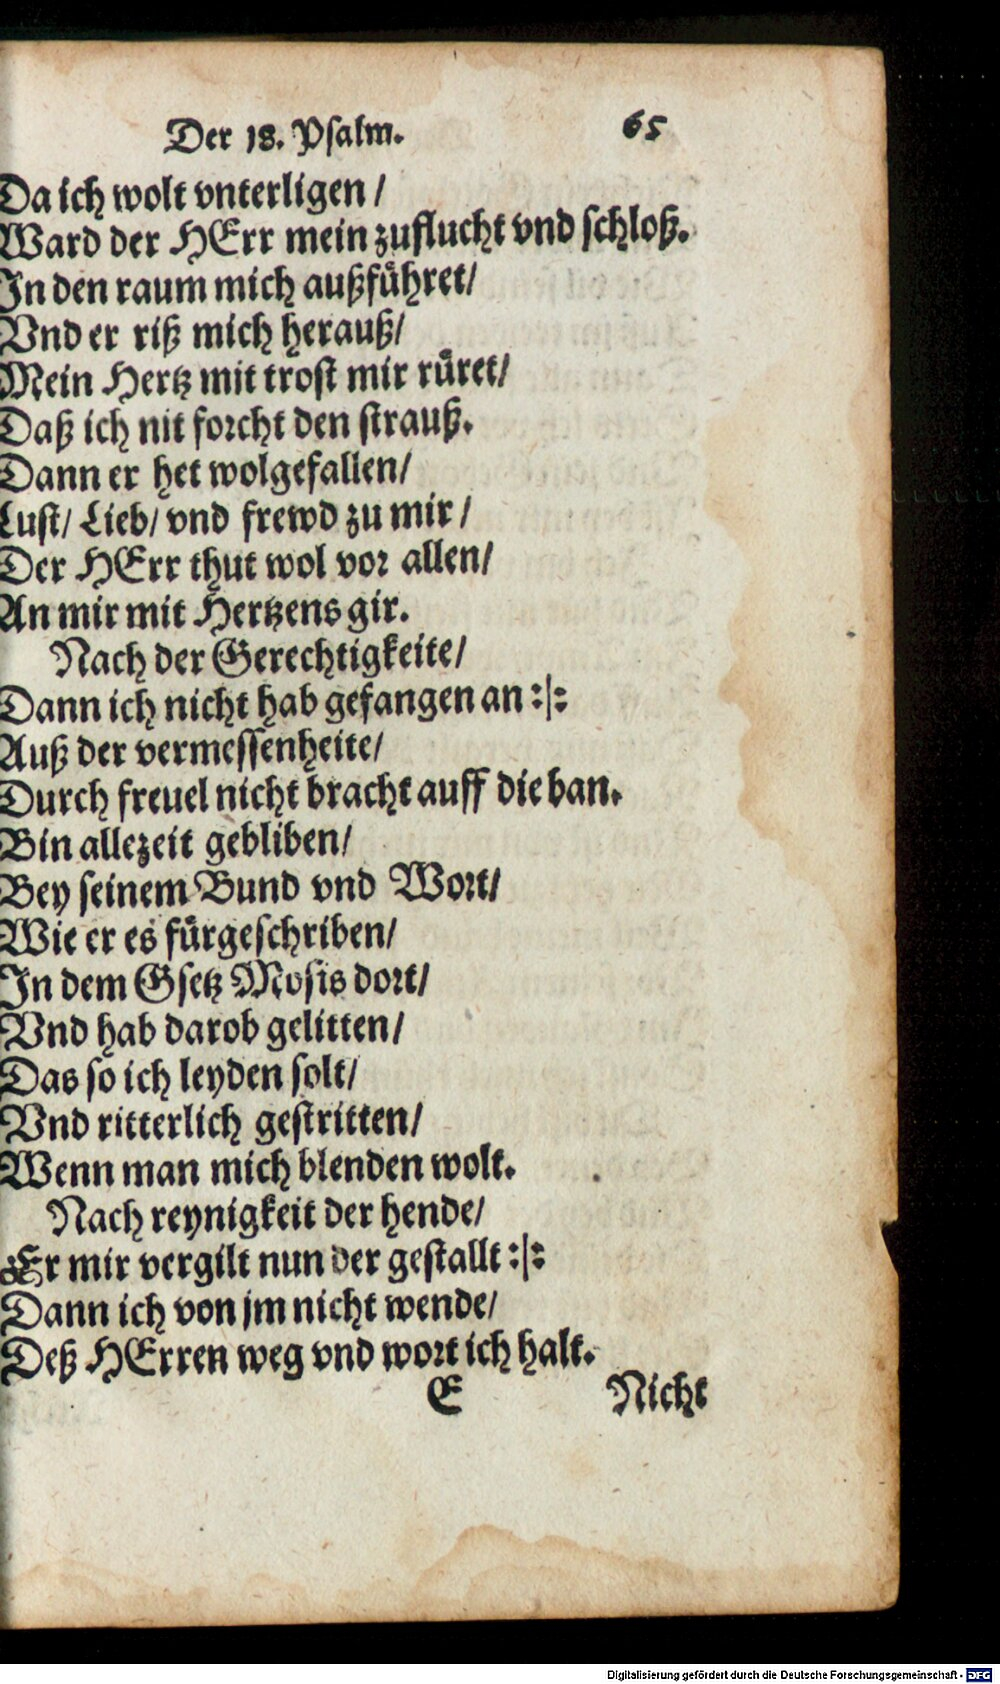 Der 18. Psalm. 65
Da ich wolt vnterligen /
Ward der HErr mein zuflucht vnd schloß.
In den raum mich außfuͤhret/
Vnd er riß mich herauß/
Mein Hertz mit trost mir ruͤret/
Daß ich nit forcht den strauß.
Dann er het wolgefallen/
Lust/ Lieb/ vnd frewd zu mir /
Der HErr thut wol vor allen/
An mir mit Hertzens gir.
Nach der Gerechtigkeite/
Dann ich nicht hab gefangen an :|:
Auß der vermessenheite/
Durch freuel nicht bracht auff die ban.
Bin allezeit gebliben/
Bey seinem Bund vnd Wort/
Wie er es fuͤrgeschriben/
In dem Gsetz Mosis dort/
Vnd hab darob gelitten/
Das so ich leyden solt/
Vnd ritterlich gestritten/
Wenn man mich blenden wolt.
Nach reynigkeit der hende/
Er mir vergilt nun der gestallt :|:
Dann ich von jm nicht wende/
Deß HErren weg vnd wort ich halt.
E Nicht
Digitalisierung gefördert durch die Deutsche Forschungsgemeinschaft - DFG